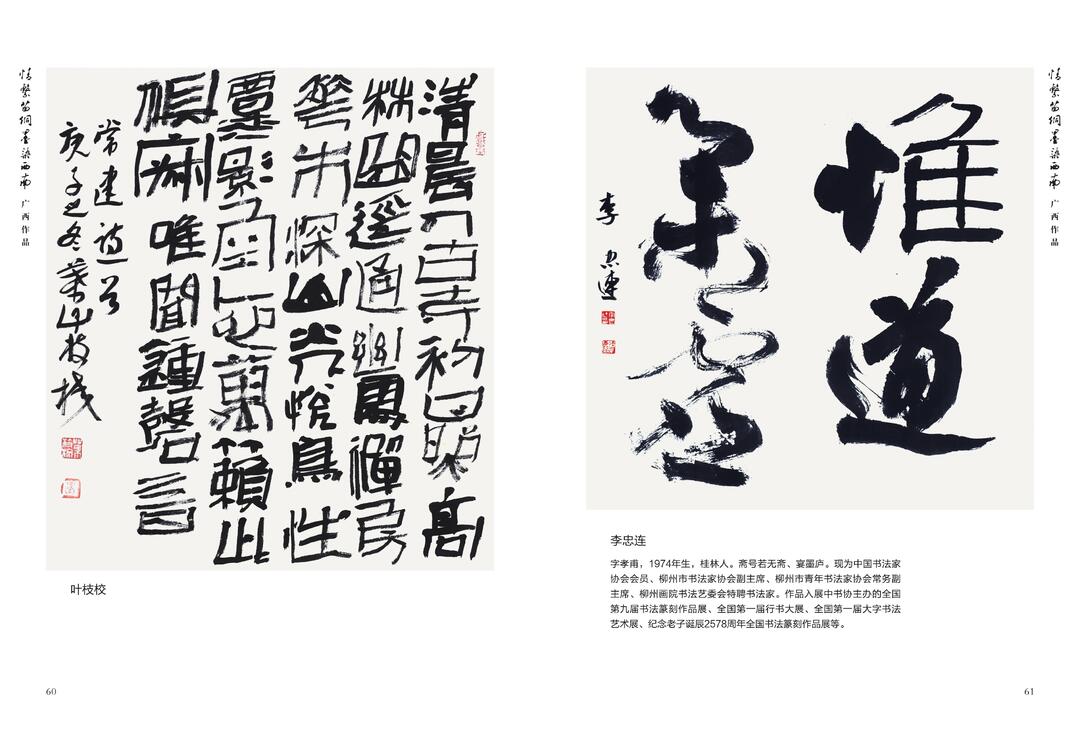 情繫
墨染西南
广西作品
清晨入古寺初日照高
林曲逕通幽處禪房
花木深山光悅鳥性
潭影空人心萬籟此
俱寂唯聞鍾磬音
常建詩一首
庚子之冬葉枝校
叶枝校
60
情繫
墨染西南
广西作品
惟道
集虛
李忠連
李忠连
字孝甫，1974年生，桂林人。斋号若无斋、宴墨庐。现为中国书法家
协会会员、柳州市书法家协会副主席、柳州市青年书法家协会常务副
主席、柳州画院书法艺委会特聘书法家。作品入展中书协主办的全国
第九届书法篆刻作品展、全国第一届行书大展、全国第一届大字书法
艺术展、纪念老子诞辰2578周年全国书法篆刻作品展等。
61